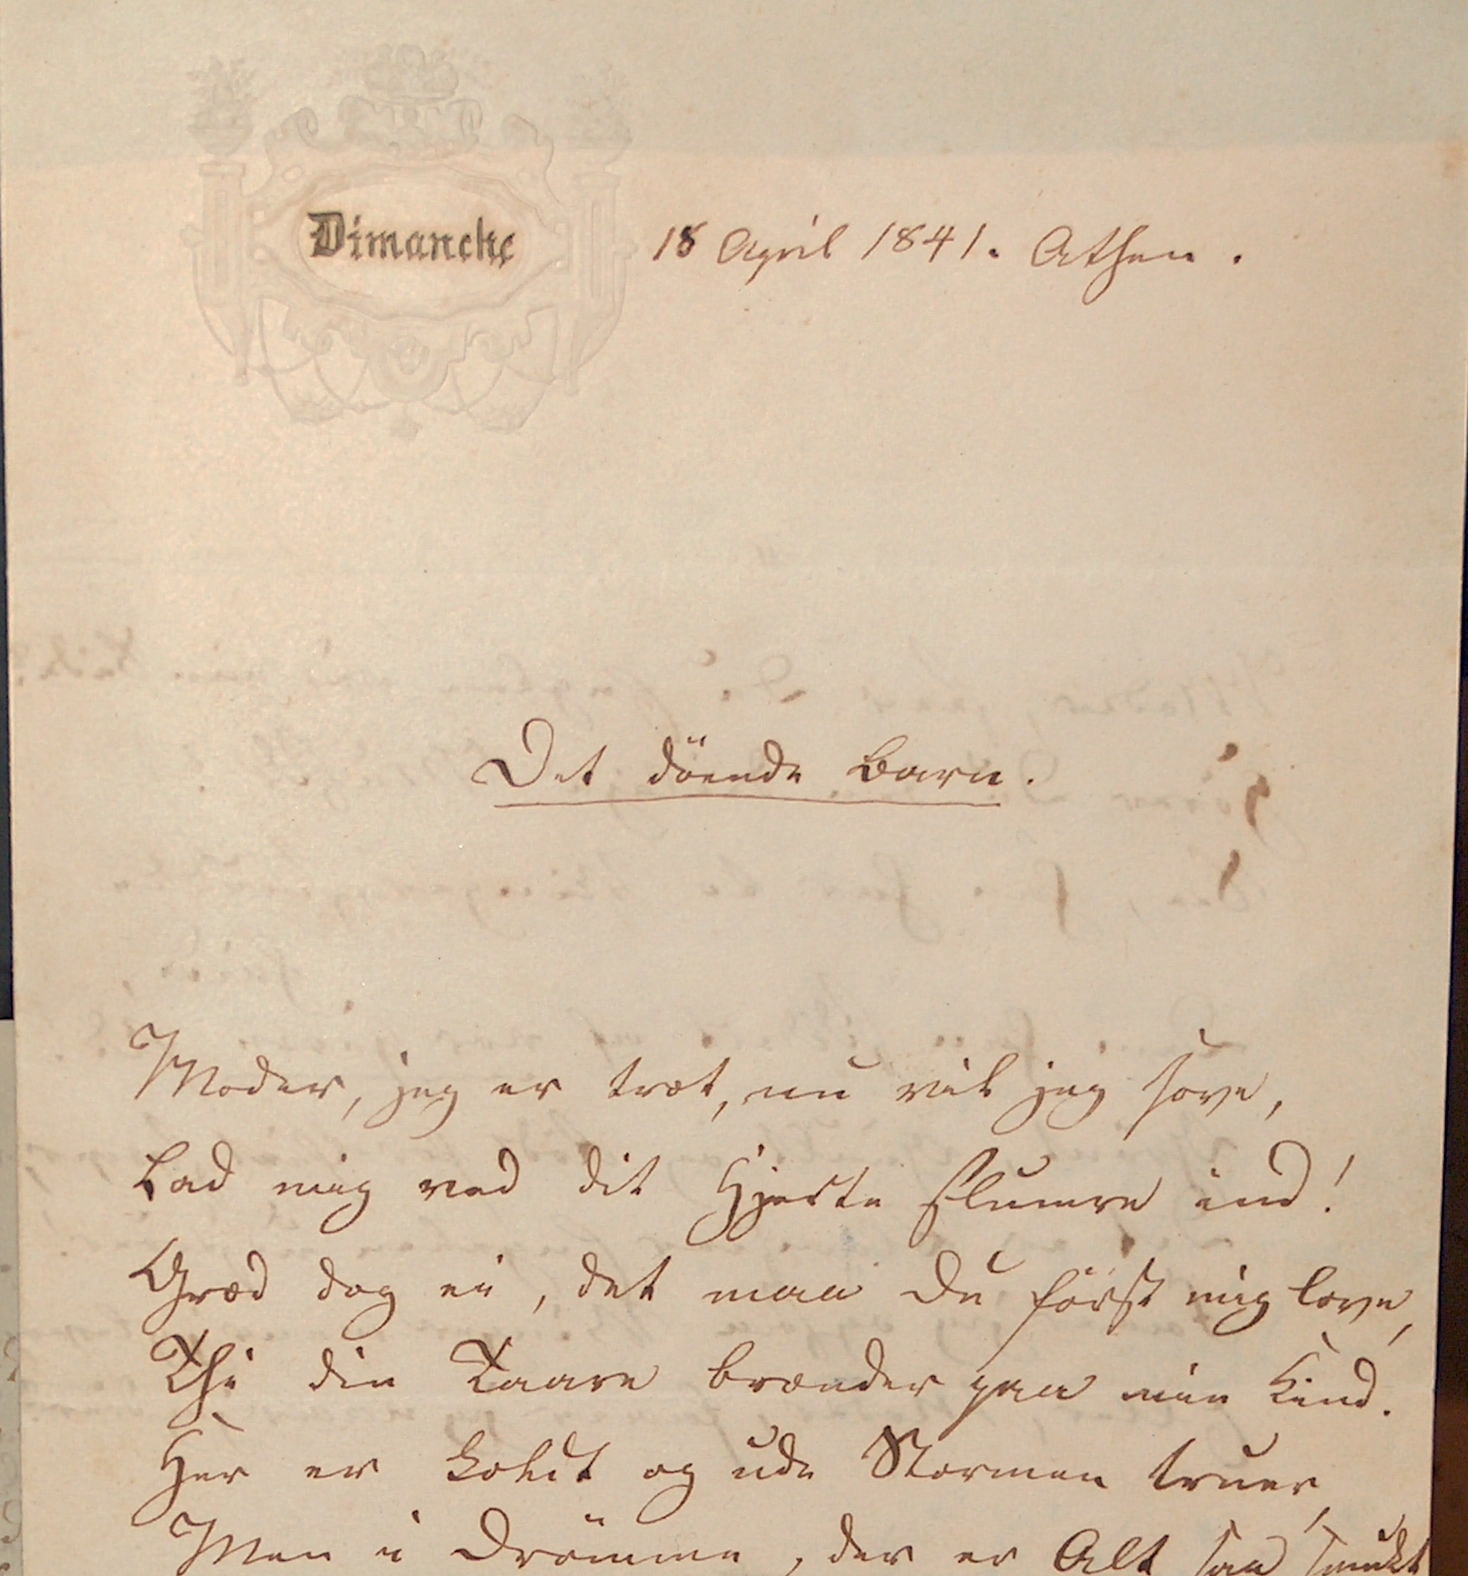 Dimanche 18 April 1841. Athen.
Det döende Barn.
Moder, jeg er træt, nu vil jeg sove,
Lad mig ved dit Hjerte slumre ind!
Græd dog ei, det maa Du först mig love,
Thi din Taare brænder paa min Kind.
Her er koldt og ude Stormen truer,
Men i Drömme, der er Alt saa smukt